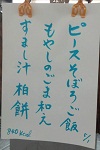 ピースそぼろご飯
もやしのごま和え
すまし汁 柏餅
840kcal